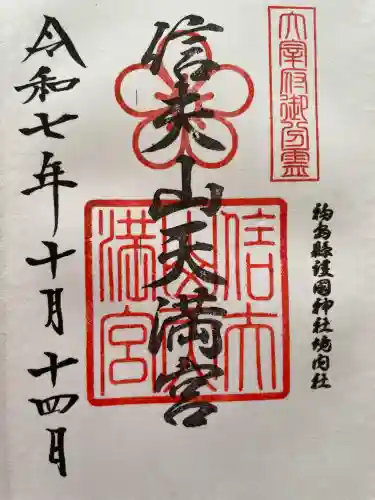 太宰府御分霊
福島縣護國神社境内社
信夫山天満宮
信夫山天満宮
令和七年十月十四日